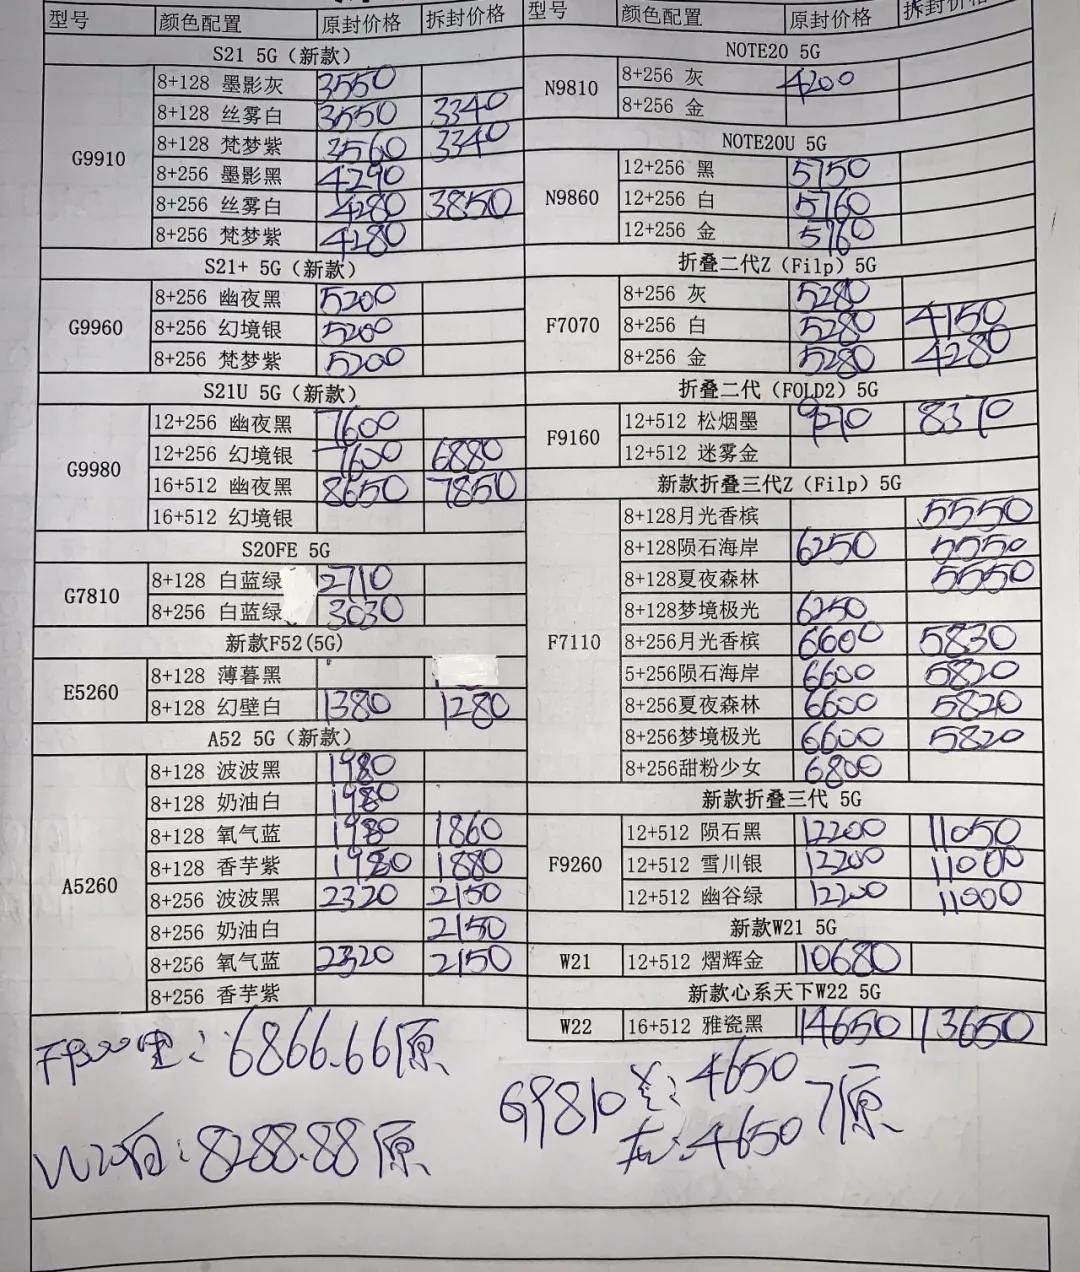 型号 颜色配置 原封价格 拆封价格
S21 5G（新款）
G9910
8+128 墨影灰 3550
8+128 丝雾白 3550 3340
8+128 梵梦紫 3560 3340
8+256 墨影黑 4290
8+256 丝雾白 4280 3850
8+256 梵梦紫 4280
S21+ 5G（新款）
G9960
8+256 幽夜黑 5200
8+256 幻境银 5200
8+256 梵梦紫 5200
S21U 5G（新款）
G9980
12+256 幽夜黑 7600
12+256 幻境银 7600 6880
16+512 幽夜黑 8650 7850
16+512 幻境银
S20FE 5G
G7810
8+128 白蓝绿 2710
8+256 白蓝绿 3030
新款F52(5G)
E5260
8+128 薄暮黑
8+128 幻壁白 1380 1280
A52 5G（新款）
A5260
8+128 波波黑 1980
8+128 奶油白 1980
8+128 氧气蓝 1980 1860
8+128 香芋紫 1980 1880
8+256 波波黑 2320 2150
8+256 奶油白 2150
8+256 氧气蓝 2320 2150
8+256 香芋紫
型号 颜色配置 原封价格 拆封价格
NOTE20 5G
N9810
8+256 灰 4200
8+256 金
NOTE20U 5G
N9860
12+256 黑 5750
12+256 白 5760
12+256 金 5760
折叠二代Z（Filp）5G
F7070
8+256 灰 5280
8+256 白 5280 4150
8+256 金 5280 4280
折叠二代（FOLD2）5G
F9160
12+512 松烟墨 9270 8370
12+512 迷雾金
新款折叠三代Z（Filp）5G
F7110
8+128月光香槟 5550
8+128陨石海岸 6250 5550
8+128夏夜森林 5550
8+128梦境极光 6250
8+256月光香槟 6600 5830
5+256陨石海岸 6600 5820
8+256夏夜森林 6600 5820
8+256梦境极光 6600 5820
8+256甜粉少女 6800
新款折叠三代 5G
F9260
12+512 陨石黑 12200 11050
12+512 雪川银 12200 11000
12+512 幽谷绿 12200 11000
新款W21 5G
W21 12+512 熠辉金 10680
新款心系天下W22 5G
W22 16+512 雅瓷黑 14650 13650
6866.66原
8288.88原
G9810 4650
灰:4650 原